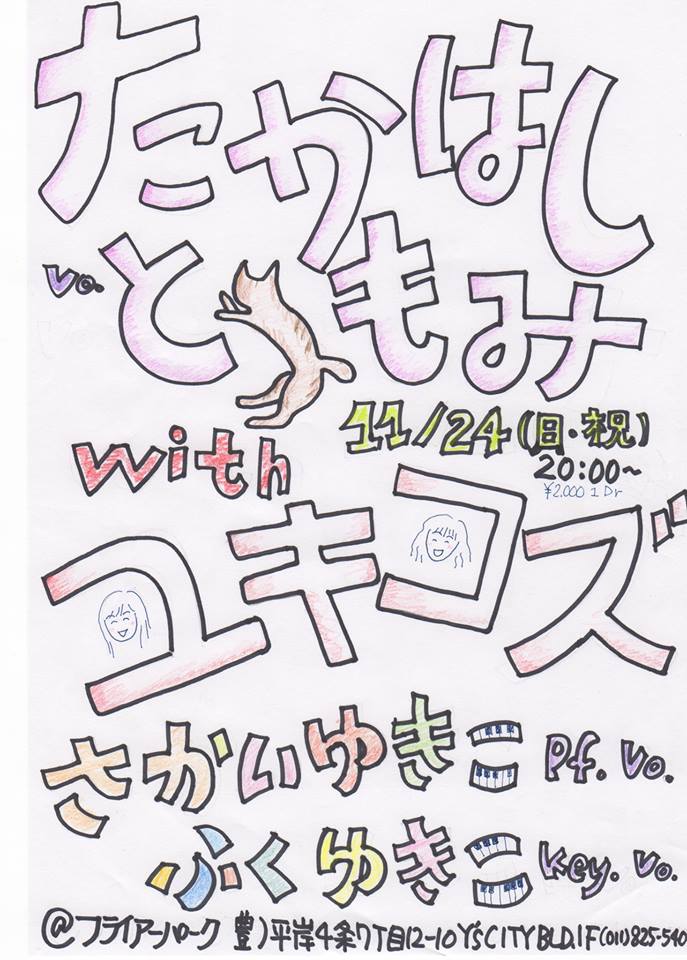 たかはし
vo. ともみ
11/24(日・祝)
with
20:00~
¥2,000 1 Dr
ユキコズ
さかいゆきこ Pf. Vo.
ふくゆきこ key. Vo.
@フライアーパーク 豊)平岸4条7丁目12-10 Y'sCITY BLD.1F (011)825-540